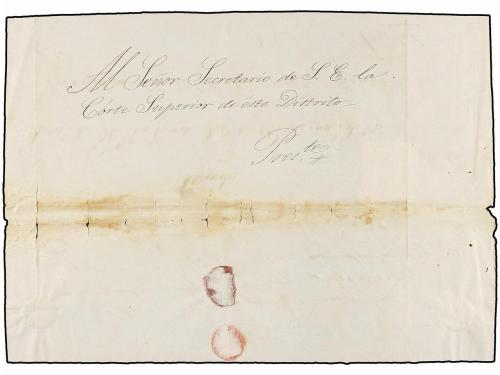 Al Señor Secretario de S. E. la
Córte Superior de este Distrito=
Pres.te